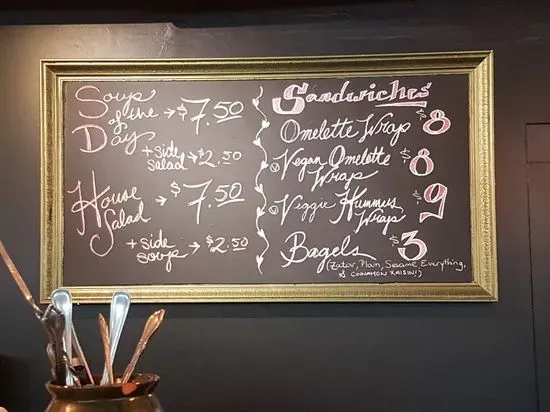 Soup
of the
Day
→ $7.50
+ side
salad → $2.50
House
Salad
→ $7.50
+ side
soup → $2.50
Sandwiches
Omelette Wrap $8
Ⓥ Vegan Omelette
Wrap $8
Ⓥ Veggie Hummus
Wraps $9
Bagels $3
(Zatar, Plain, Sesame, Everything,
& CINNAMON RAISIN!)